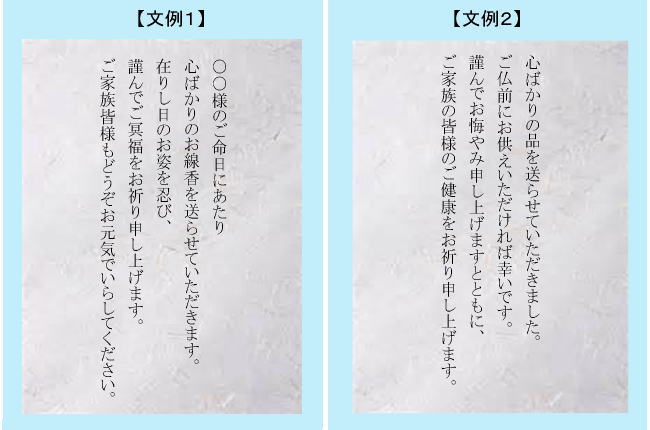 【文例1】
○○様のご命日にあたり
心ばかりのお線香を送らせていただきます。
在りし日のお姿を忍び、
謹んでご冥福をお祈り申し上げます。
ご家族皆様もどうぞお元気でいらしてください。
【文例2】
心ばかりの品を送らせていただきました。
ご仏前にお供えいただければ幸いです。
謹んでお悔やみ申し上げますとともに、
ご家族の皆様のご健康をお祈り申し上げます。